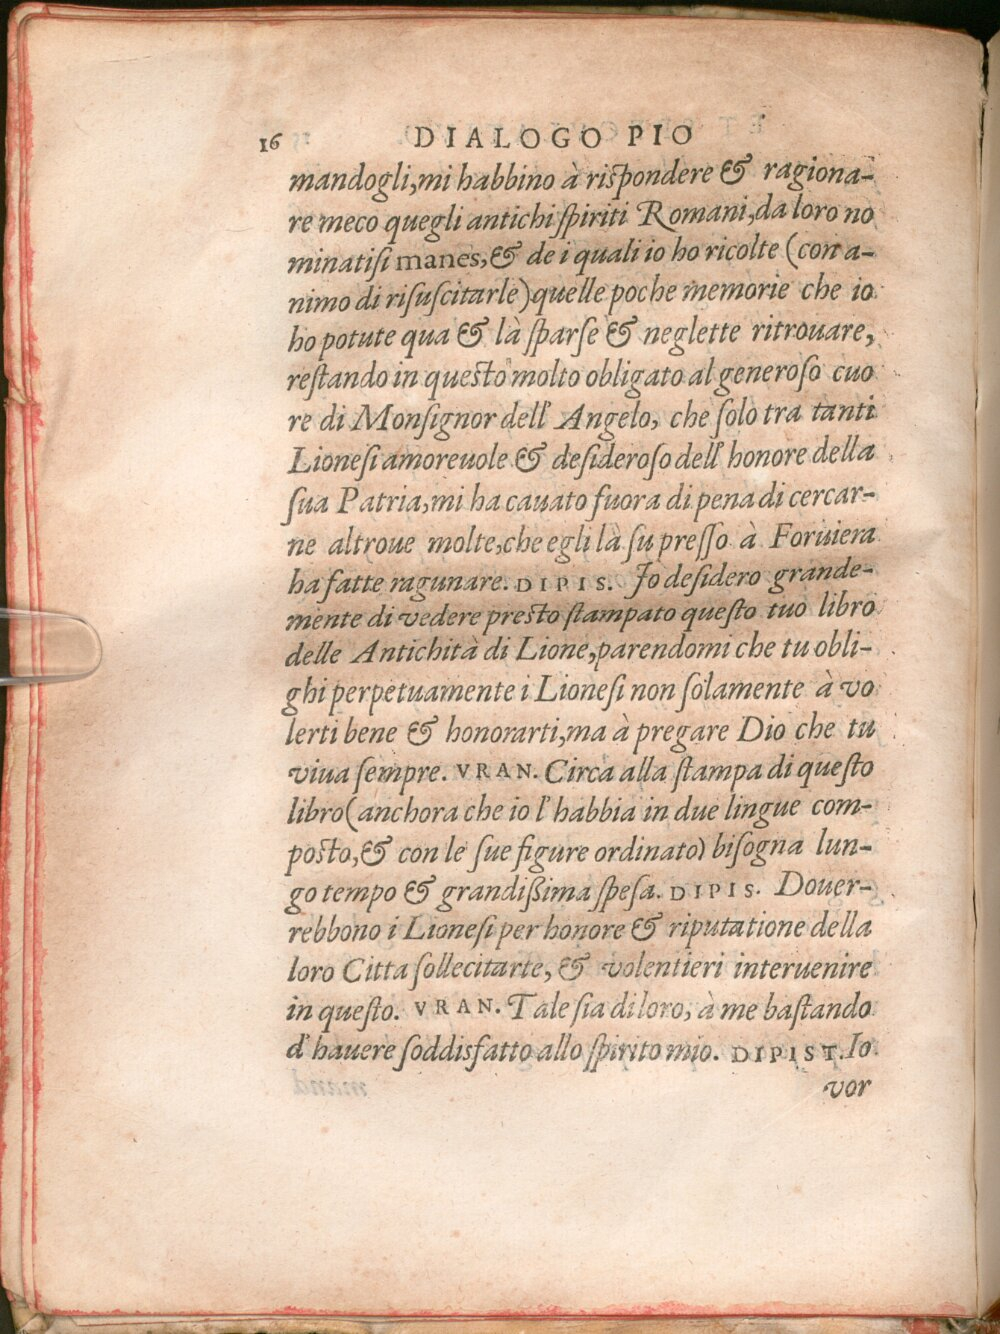 16 DIALOGO PIO
mandogli, mi habbino à rispondere & ragiona-
re meco quegli antichi spiriti Romani, da loro no
minatisi manes, & de i quali io ho ricolte (con a-
nimo di risuscitarle) quelle poche memorie che io
ho potute qua & là sparse & neglette ritrouare,
restando in questo molto obligato al generoso cuo
re di Monsignor dell' Angelo, che solo tra tanti
Lionesi amoreuole & desideroso dell' honore della
sua Patria, mi ha cauato fuora di pena di cercar-
ne altroue molte, che egli là su presso à Foruiera
ha fatte ragunare. DIPIS. Io desidero grande-
mente di vedere presto stampato questo tuo libro
delle Antichità di Lione, parendomi che tu obli-
ghi perpetuamente i Lionesi non solamente à vo
lerti bene & honorarti, ma à pregare Dio che tu
viua sempre. VRAN. Circa alla stampa di questo
libro (anchora che io l' habbia in due lingue com-
posto, & con le sue figure ordinato) bisogna lun-
go tempo & grandißima spesa. DIPIS. Douer-
rebbono i Lionesi per honore & riputatione della
loro Citta sollecitarte, & volentieri interuenire
in questo. VRAN. Tale sia di loro, à me bastando
d' hauere soddisfatto allo spirito mio. DIPIST. Io
vor